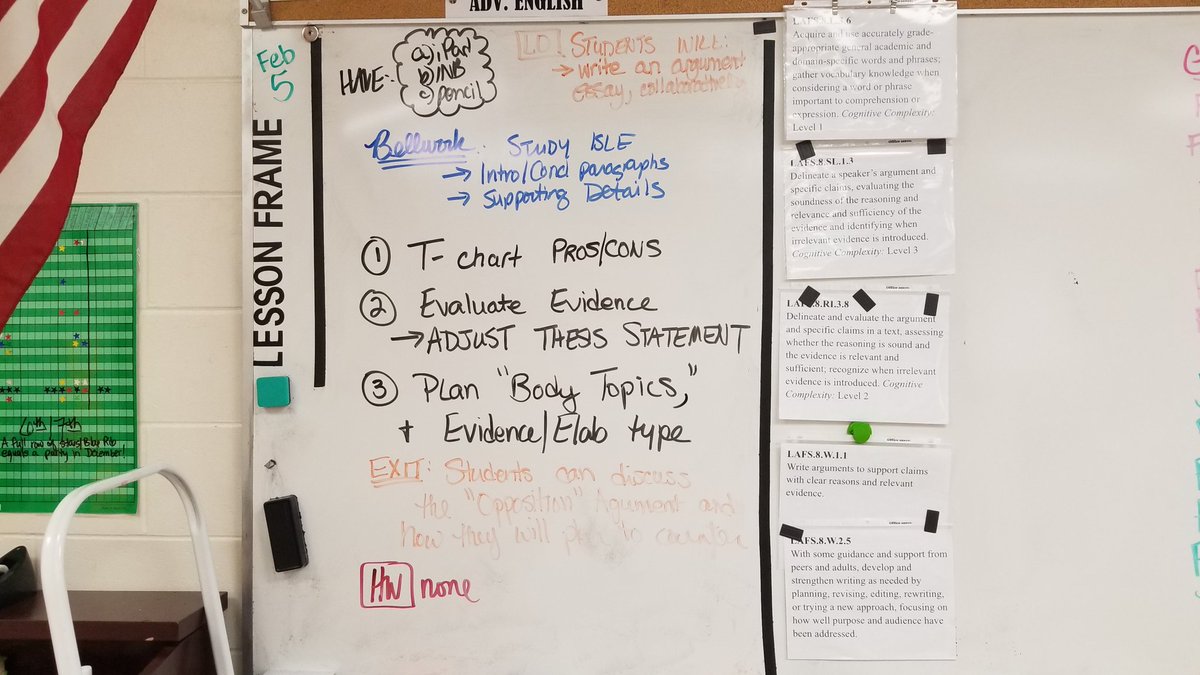 ADV. ENGLISH
Feb
5
LESSON FRAME
HAVE:
a) iPad
b) INB
c) pencil
LO
STUDENTS WILL:
→ write an argument
essay, collaboratively
Bellwork: STUDY ISLE
→ Intro/Concl paragraphs
→ Supporting Details
① T-chart PROS/CONS
② Evaluate Evidence
→ ADJUST THESIS STATEMENT
③ Plan "Body Topics,"
+ Evidence/Elab type
EXIT: Students can discuss
the "Opposition" Argument and
how they will plan to counter
HW none
Acquire and use accurately grade-
appropriate general academic and
domain-specific words and phrases;
gather vocabulary knowledge when
considering a word or phrase
important to comprehension or
expression. Cognitive Complexity:
Level 1
LAFS.8.SL.1.3
Delineate a speaker's argument and
specific claims, evaluating the
soundness of the reasoning and
relevance and sufficiency of the
evidence and identifying when
irrelevant evidence is introduced.
Cognitive Complexity: Level 3
LAFS.8.RI.3.8
Delineate and evaluate the argument
and specific claims in a text, assessing
whether the reasoning is sound and
the evidence is relevant and
sufficient; recognize when irrelevant
evidence is introduced. Cognitive
Complexity: Level 2
LAFS.8.W.1.1
Write arguments to support claims
with clear reasons and relevant
evidence.
LAFS.8.W.2.5
With some guidance and support from
peers and adults, develop and
strengthen writing as needed by
planning, revising, editing, rewriting,
or trying a new approach, focusing on
how well purpose and audience have
been addressed.
6th/7th
A full row of stars/Blue Rib
equals a party in December!